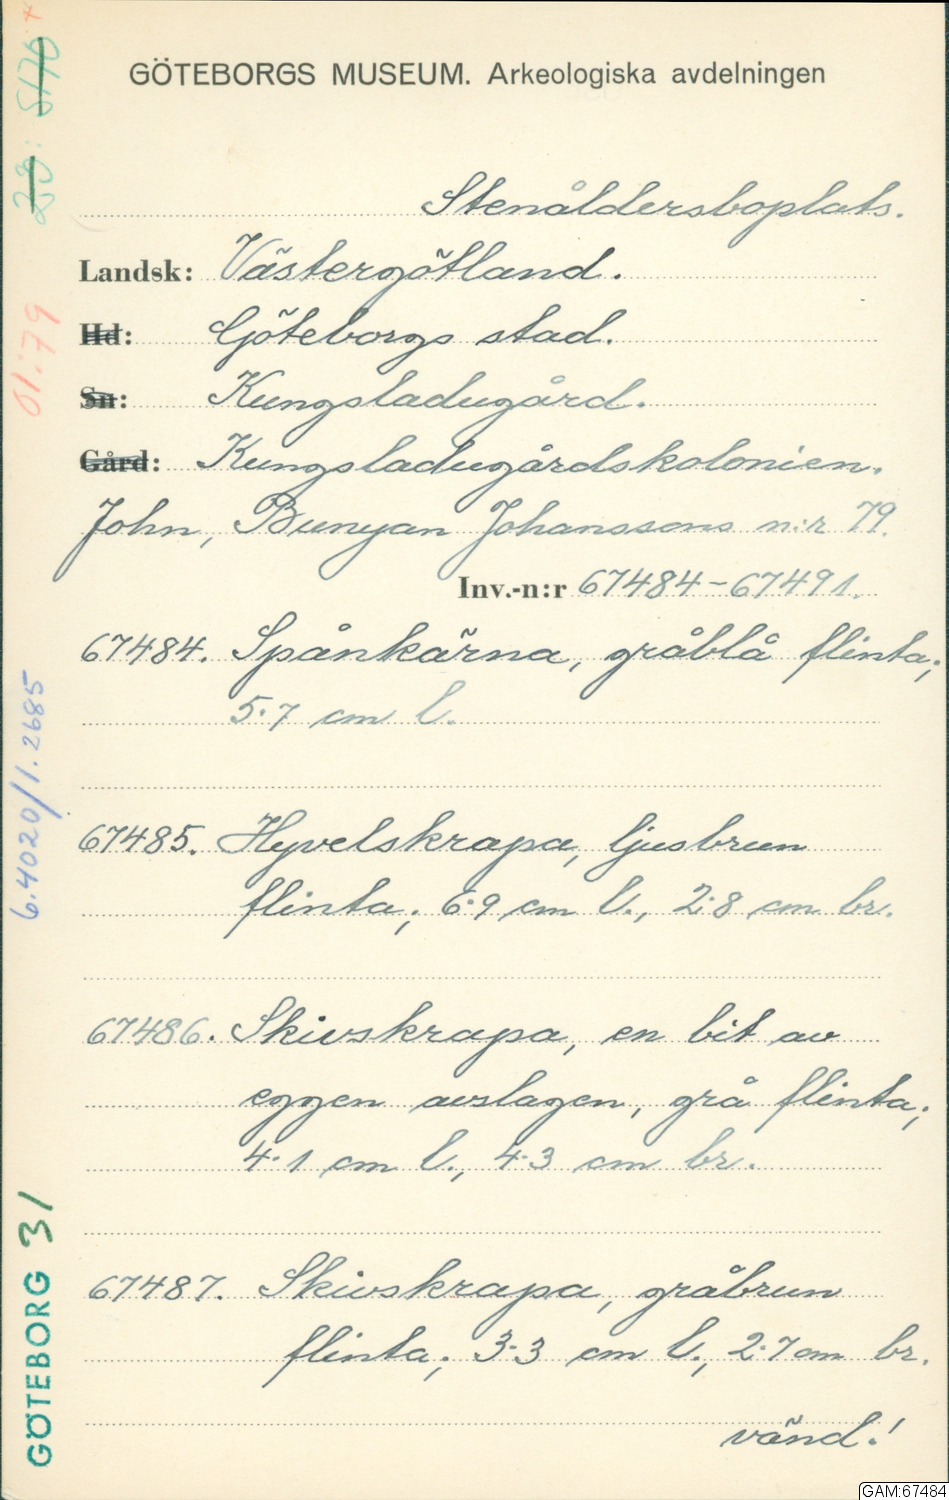 GÖTEBORGS MUSEUM. Arkeologiska avdelningen
Stenåldersboplats.
Landsk: Västergötland.
Hd: Göteborgs stad.
Sn: Kungsladugård.
Gård: Kungsladugårdskolonien.
John, Bunyan Johanssons n:r 79.
Inv.-n:r 67484-67491.
67484. Spånkärna, gråblå flinta;
5·7 cm l.
67485. Hyvelskrapa, ljusbrun
flinta; 6·9 cm l., 2·8 cm br.
67486. Skivskrapa, en bit av
eggen avslagen, grå flinta;
4·1 cm l., 4·3 cm br.
67487. Skivskrapa, gråbrun
flinta; 3·3 cm l., 2·7 cm br.
vänd!
01:79
6.4020/1.2685
GÖTEBORG 31
GAM:67484